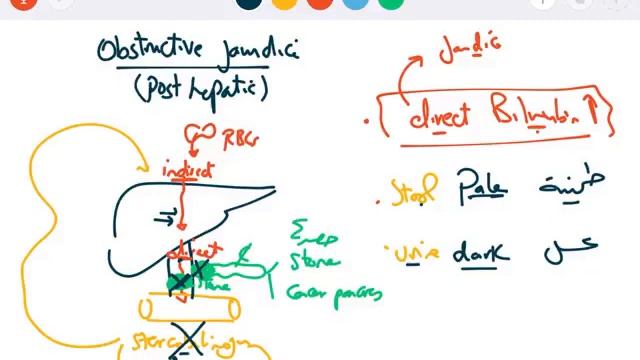 Obstructive jaundici
(Post hepatic)
RBCs
indirect
direct
stone
stone
Cancer pancreas
stercobilinogen
Jandic
direct Bilirubin ↑
Stool Pale طينية
Urine dark عسل